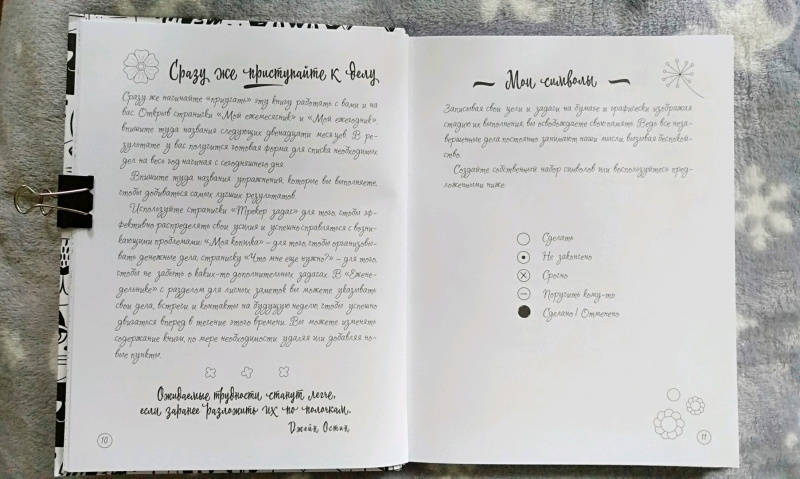 Сразу же приступайте к делу
Сразу же начинайте «придгать» эту книгу работать с вами и на
вас. Открыв страписки «Мой ежемесягник» и «Мой ежегодник»
впишите туда названия следующих двенадцати месяцев. В ре-
зультате у вас полугится готовая форма для списка необходимых
дел на весь год начиная с сегодняшнего дня.
Впишите туда названия упражнений, которые вы выполняете,
чтобы добиваться самых лучших результатов.
Используйте страписки «Трекер задаг» для того, чтобы эф-
фективно распределять свои усилия и успешно справляться с возни-
кающими проблемами: «Моя копилка» – для того, чтобы организовы-
вать денежные дела, страписку «Что мне еще нужно?» – для того,
чтобы не забыть о каких-то дополнительных задагах. В «Ежене-
дельнике» с разделом для лигных заметок вы можете указывать
свои дела, встреги и контакты на будущую неделю, чтобы успешно
двигаться вперед в тегение этого времени. Вы можете изменять
содержание книги, по мере необходимости удаляя или добавляя но-
вые пункты.
Ожидаемые трудности станут легче,
если заранее разложить их по полочкам.
Джейн Остин
10
Мои символы
Записывая свои цели и задаги на бумаге и графически изображая
стадию их выполнения, вы освобождаете свою память. Ведь все неза-
вершенные дела постоянно занимают наши мысли, вызывая беспокой-
ство.
Создайте собственный набор символов или воспользуйтесь пред-
ложенными ниже:
Сделать
Не закончено
Срочно
Поручить кому-то
Сделано! Отменено
11